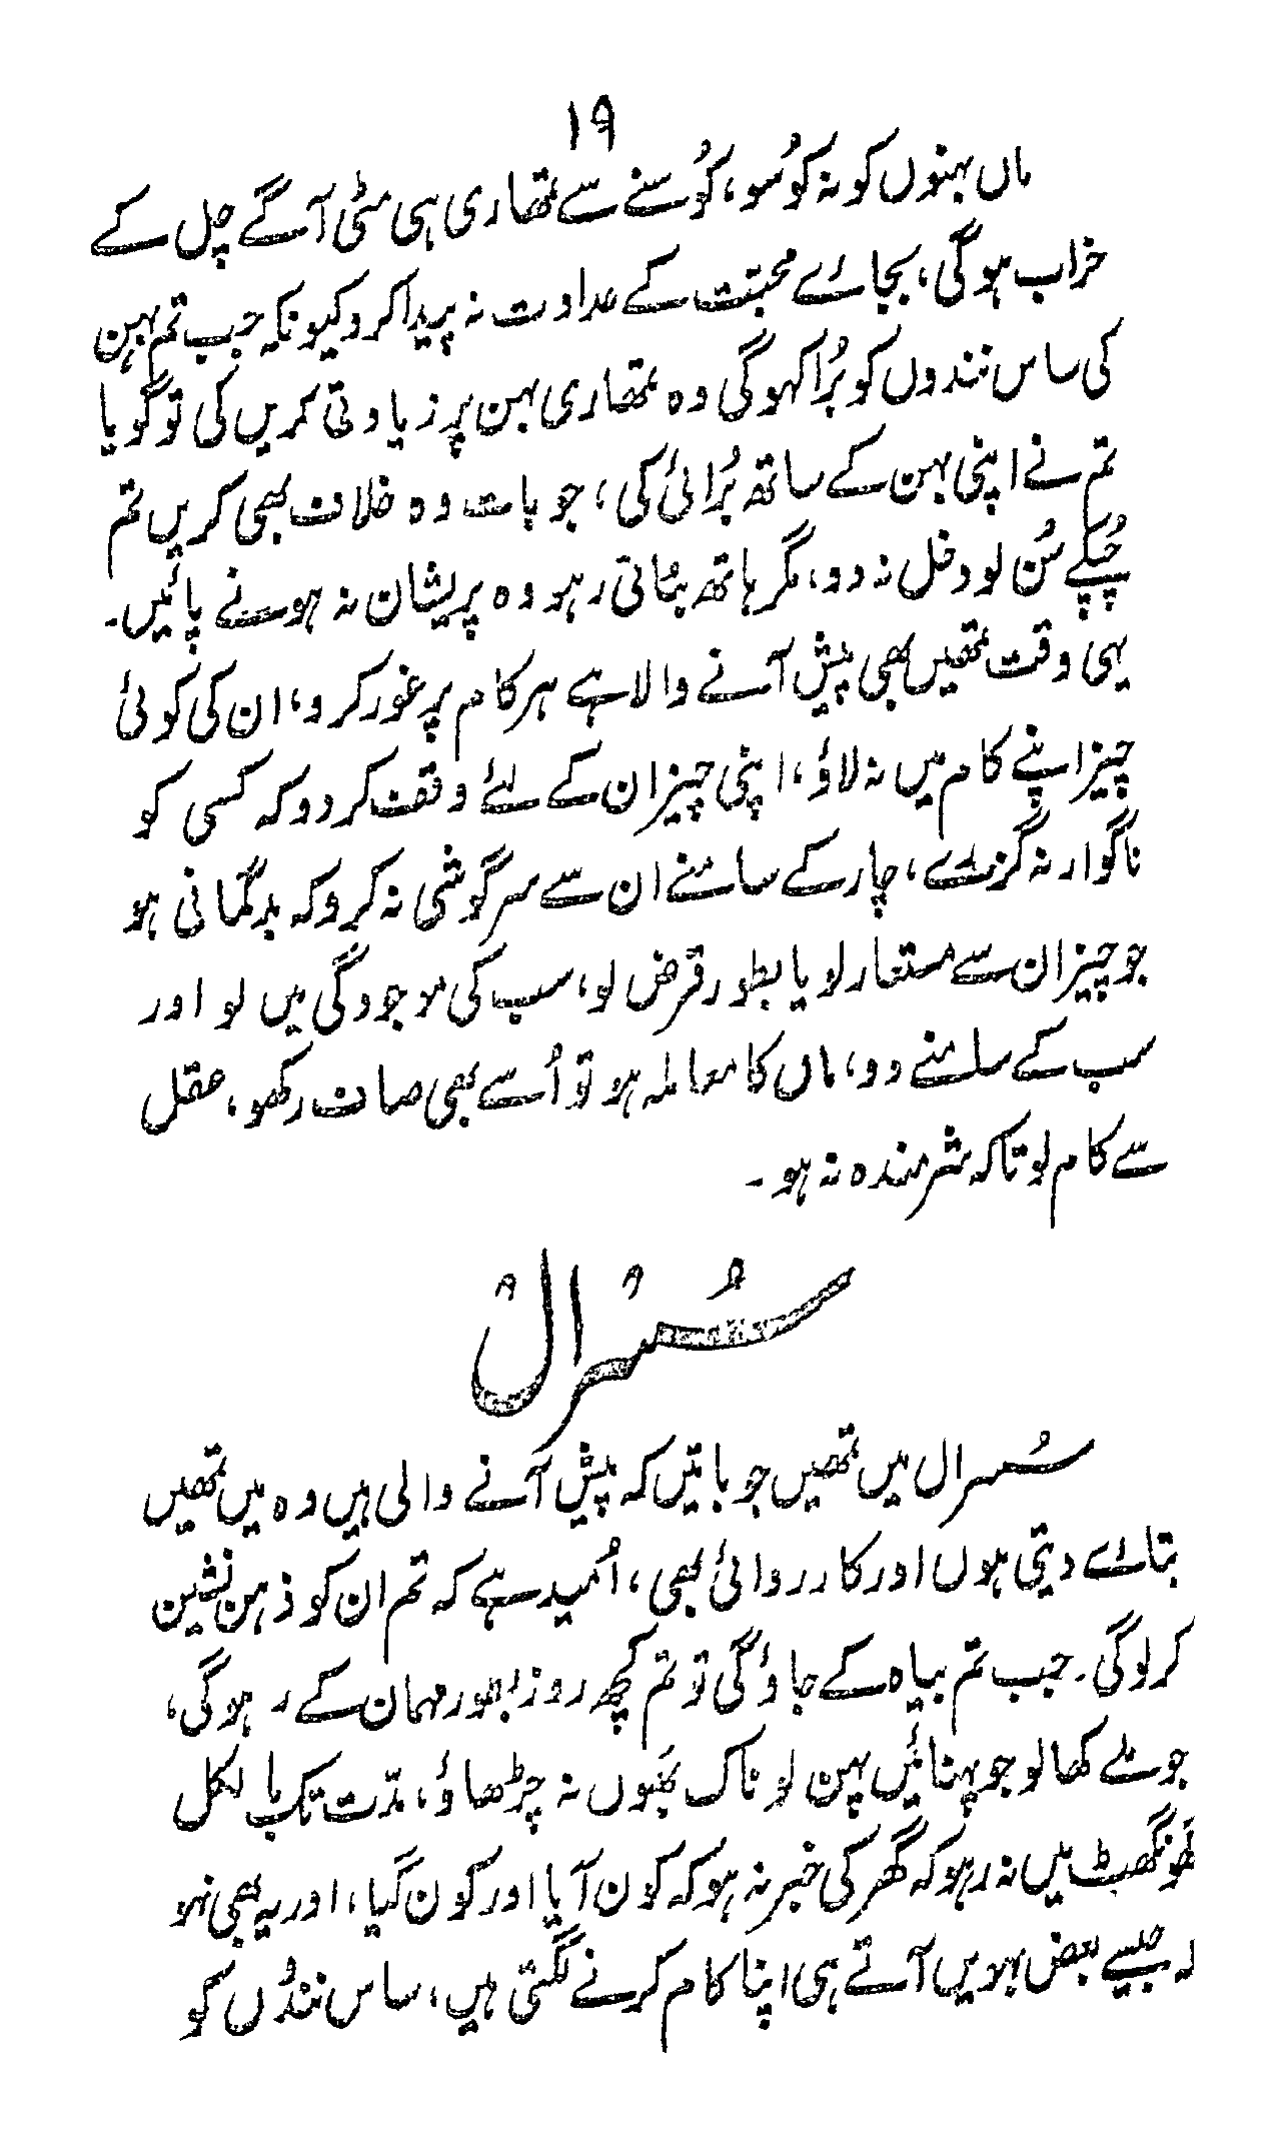 ۱۹
ماں بہنوں کو نہ کوُسو، کوُسنے سے تمھاری ہی مٹی آگے چل کے
خراب ہوگی، بجائے محبّت کے عداوت نہ پیدا کرو کیونکہ جب تم بہن
کی ساس نندوں کو بُرا کہوگی وہ تمھاری بہن پر زیادتی کریں گی تو گویا
تم نے اپنی بہن کے ساتھ بُرائی کی، جو بات وہ خلاف بھی کریں تم
چُپکے سُن لو دخل نہ دو، مگر ہاتھ بٹاتی رہو وہ پریشان نہ ہونے پائیں۔
یہی وقت تمھیں بھی پیش آنے والا ہے ہر کام پر غور کرو، ان کی کوئی
چیز اپنے کام میں نہ لاؤ، اپنی چیز ان کے لئے وقف کردو کہ کسی کو
ناگوار نہ گزرے، چار کے سامنے ان سے سرگوشی نہ کرو کہ بدگمانی ہو
جو چیز ان سے مستعار لو یا بطور قرض لو، سب کی موجودگی میں لو اور
سب کے سامنے دو، ماں کا معاملہ ہو تو اُسے بھی صاف رکھو، عقل
سے کام لو تاکہ شرمندہ نہ ہو۔
سُسْرالْ
سُسرال میں تمھیں جو باتیں کہ پیش آنے والی ہیں وہ میں تمھیں
بتائے دیتی ہوں اور کارروائی بھی، اُمید ہے کہ تم ان کو ذہن نشین
کرلوگی۔ جب تم بیاہ کے جاؤگی تو تم کچھ روز بطور مہمان کے رہوگی،
جو ملے کھالو جو پہنائیں پہن لو ناک بھَوں نہ چڑھاؤ، مدّت تک بالکل
گھونگھٹ میں نہ رہو کہ گھر کی خبر نہ ہو کہ کون آیا اور کون گیا، اور یہ بھی نہو
کہ جیسے بعض بہویں آتے ہی اپنا کام کرنے لگتی ہیں، ساس نندُوں کو